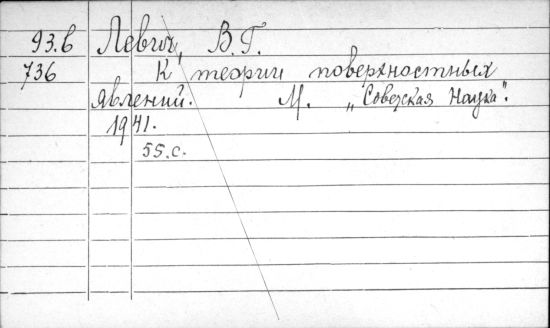 93.в Левич, В.Г.
736 К теории поверхностных
явлений. М. „Советская Наука".
1941.
55.с.